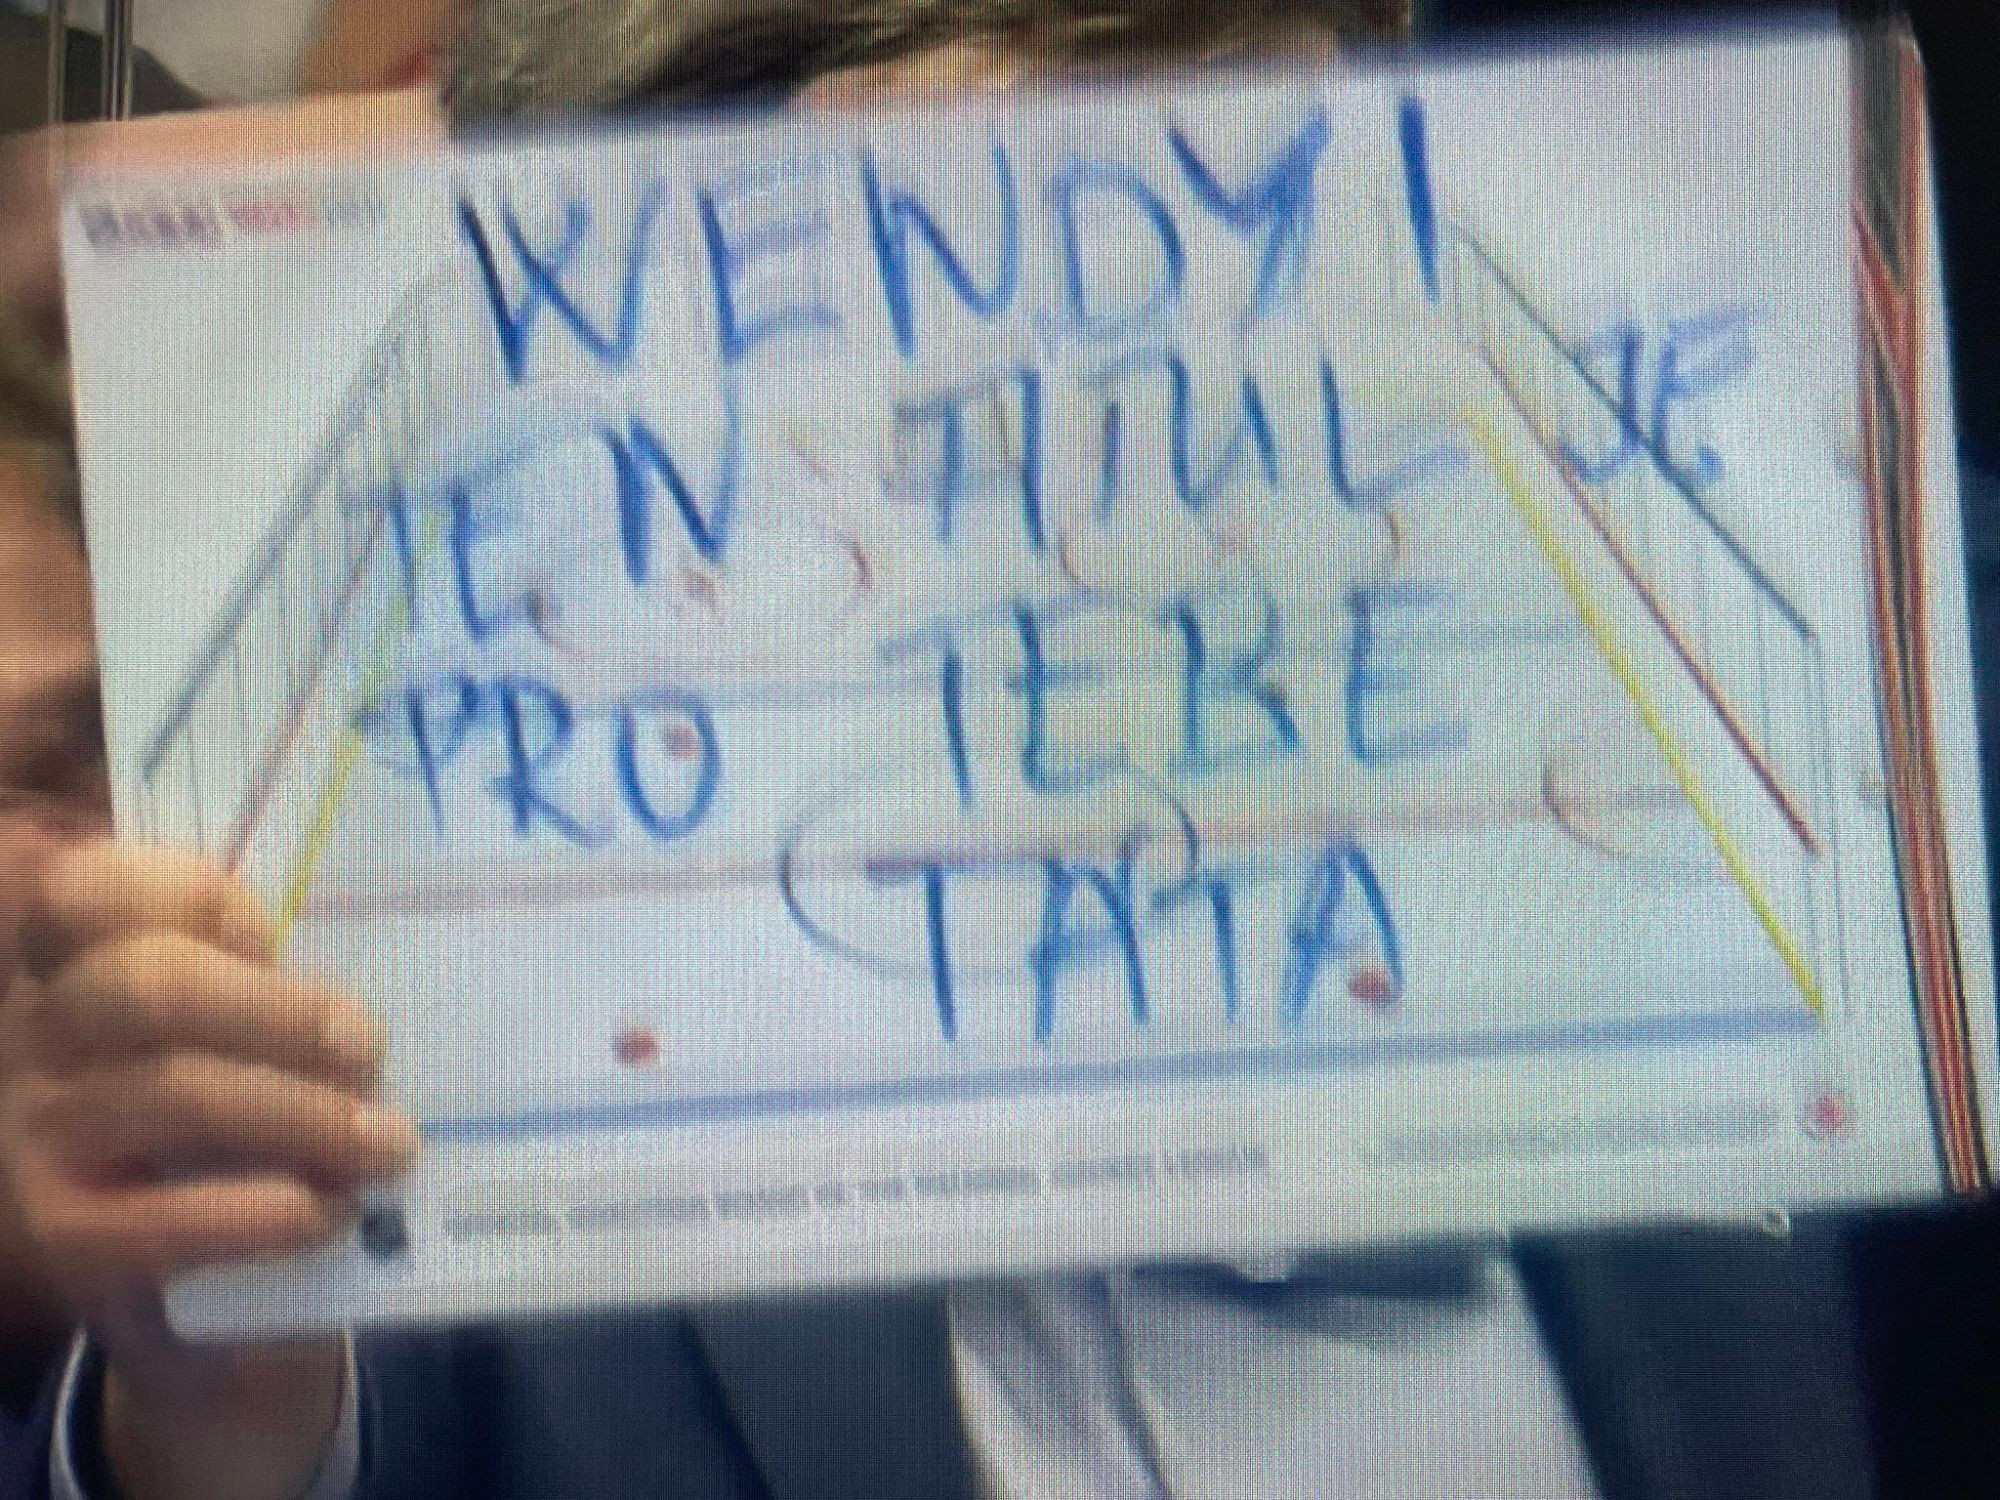 WENDY!
TEN TITUL JE
PRO TEBE
TATA